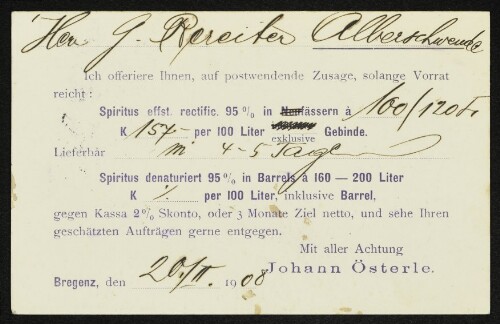 Herrn G. Rereiter Alberschwende
Ich offeriere Ihnen, auf postwendende Zusage, solange Vorrat
reicht:
Spiritus effst. rectific. 95 % in Neufässern à 100/120 Lt.
K 157.- per 100 Liter exklusive Gebinde.
Lieferbar in 4-5 Tagen
Spiritus denaturiert 95 % in Barrels à 160 — 200 Liter
K ./. per 100 Liter, inklusive Barrel,
gegen Kassa 2% Skonto, oder 3 Monate Ziel netto, und sehe Ihren
geschätzten Aufträgen gerne entgegen.
Mit aller Achtung
Johann Österle.
Bregenz, den 20./II. 1908